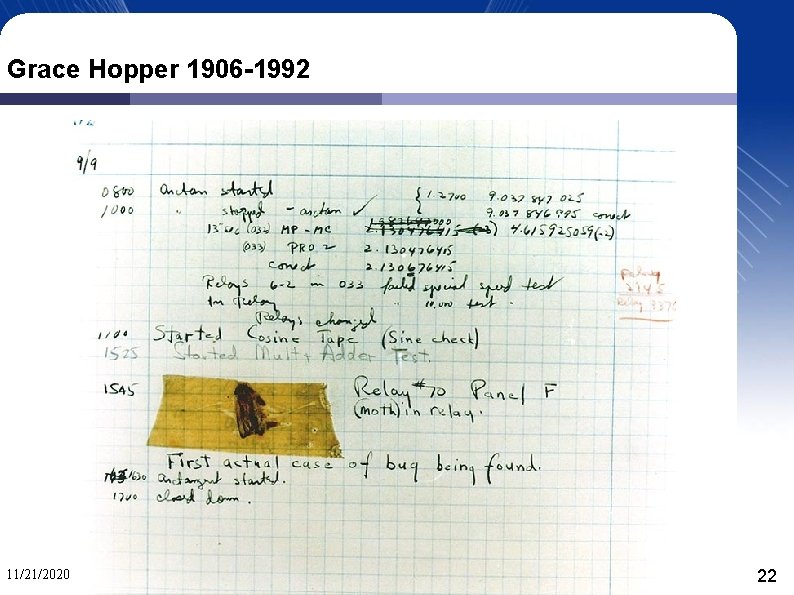 Grace Hopper 1906 -1992
9/9
0800 antan started { 1.2700 9.037 847 025
1000 " stopped - antan ✓ 9.037 846 995 conect
13" sec (032) MP - MC 2.130476415 (-3) 4.615925059(-2)
(033) PRO 2 2.130476415
conect 2.130676415
Relays 6-2 in 033 failed special speed test
In Relay " 10,000 test .
Relay
3370
Relays changed
1100 Started Cosine Tape (Sine check)
1525 Started Mult + Adder Test.
1545 Relay #70 Panel F
(moth) in relay.
First actual case of bug being found.
1630 antangent started.
1700 closed down.
11/21/2020
22